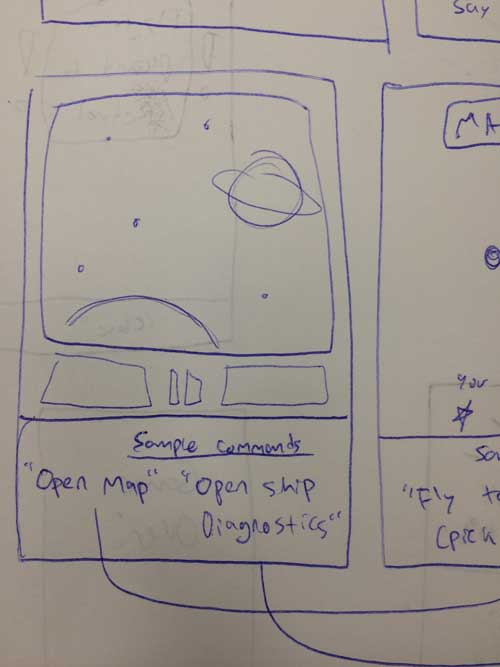 Say
Sample Commands
"Open Map" "Open Ship
Diagnostics"
MA
You
Sa
"Fly to
(pick